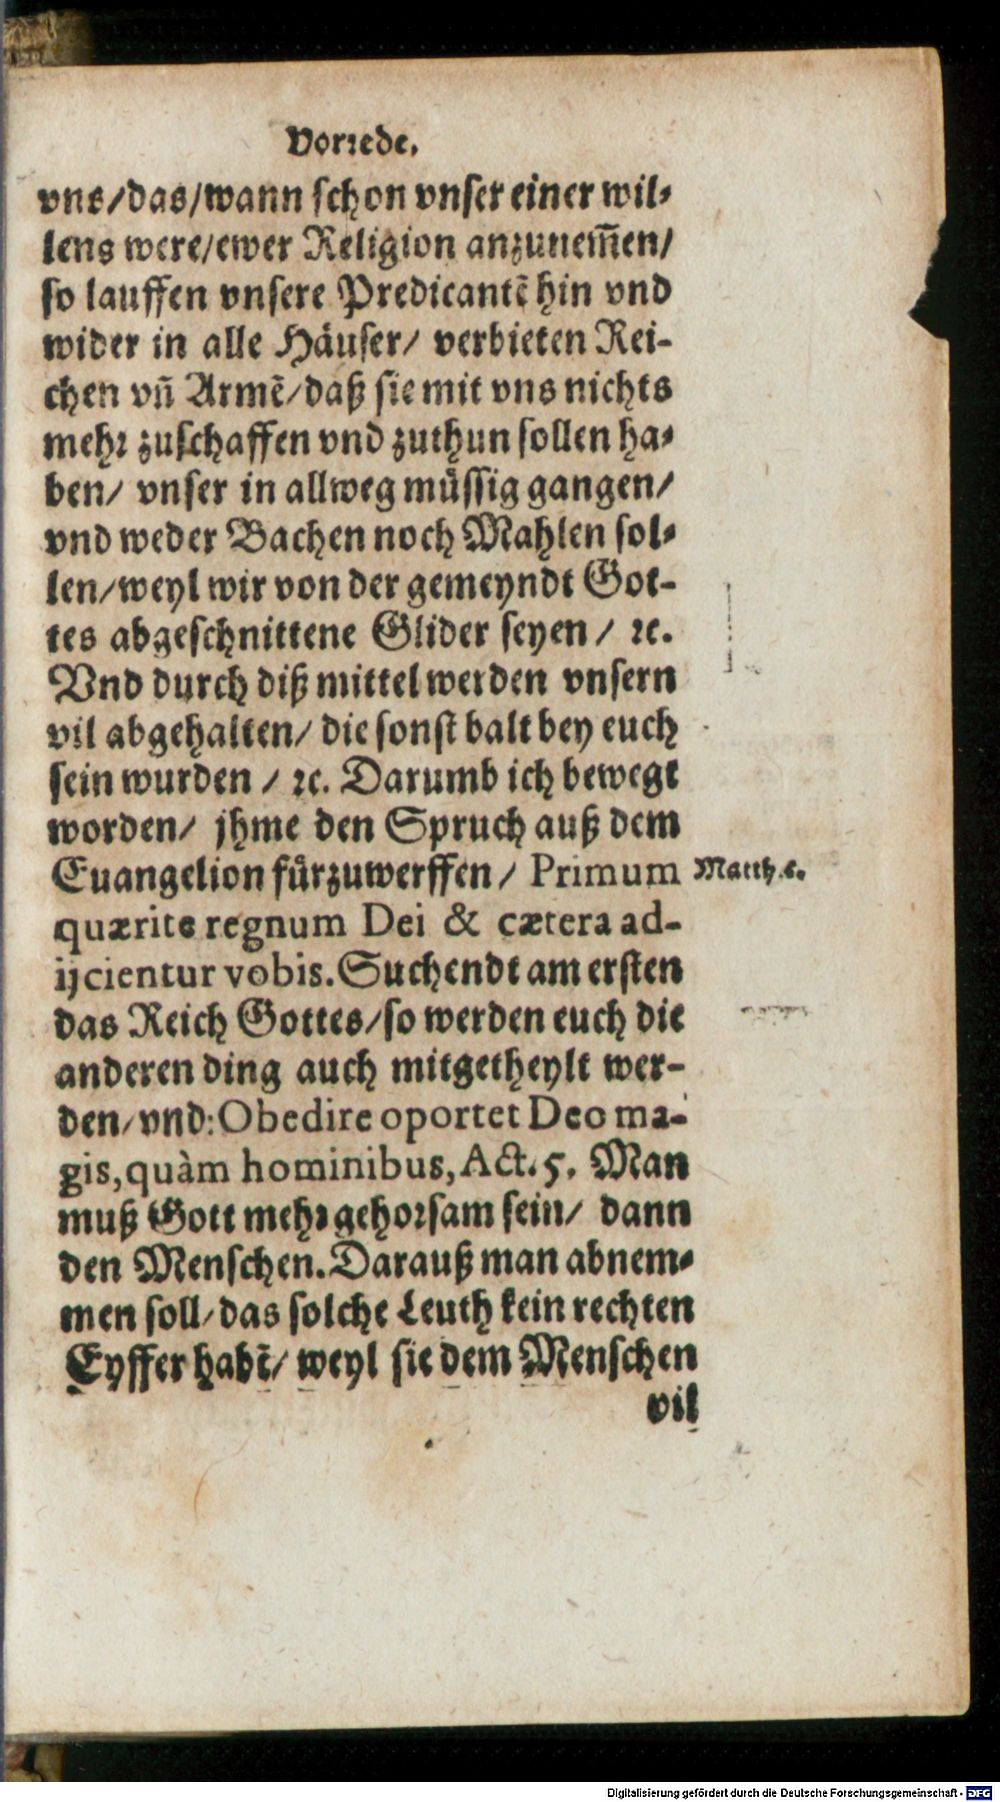 Vorrede.
vns/das/wann schon vnser einer wil-
lens were/ewer Religion anzunem̃en/
so lauffen vnsere Predicantẽ hin vnd
wider in alle Häuser/ verbieten Rei-
chen vñ Armẽ/daß sie mit vns nichts
mehr zuschaffen vnd zuthun sollen ha-
ben/ vnser in allweg müssig gangen/
vnd weder Bachen noch Mahlen sol-
len/weyl wir von der gemeyndt Got-
tes abgeschnittene Glider seyen/ ꝛc.
Vnd durch diß mittel werden vnsern
vil abgehalten/ die sonst balt bey euch
sein wurden/ ꝛc. Darumb ich bewegt
worden/ jhme den Spruch auß dem
Euangelion fürzuwerffen/ Primum
Matth. 6.
quærite regnum Dei & cætera ad-
ijcientur vobis. Suchendt am ersten
das Reich Gottes/so werden euch die
anderen ding auch mitgetheylt wer-
den/vnd: Obedire oportet Deo ma-
gis, quàm hominibus, Act. 5. Man
muß Gott mehr gehorsam sein/ dann
den Menschen. Darauß man abnem-
men soll/das solche Leuth kein rechten
Eyffer habẽ/ weyl sie dem Menschen
vil
Digitalisierung gefördert durch die Deutsche Forschungsgemeinschaft - DFG